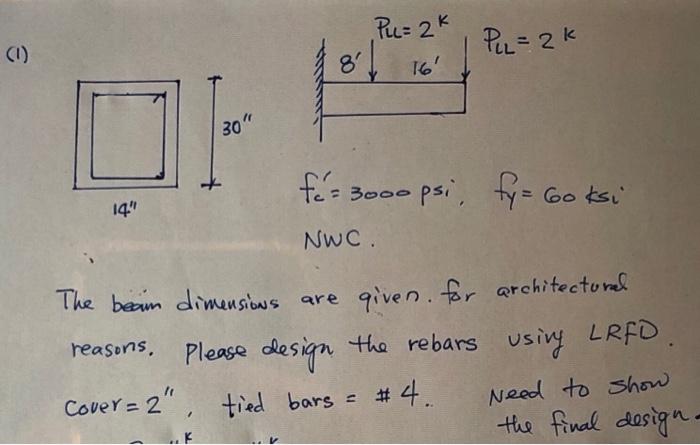 PLL= 2 K
PLL = 2 K
(1)
8'
16'
30"
14"
fc' = 3000 psi, fy = 60 ksi
NWC.
The beam dimensions are given. for architectural
reasons. Please design the rebars using LRFD.
Cover = 2", tied bars = #4. Need to show
the final design.